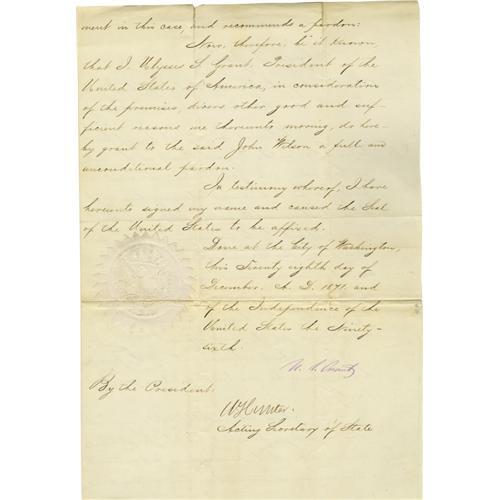 ment in this case, and recommends a pardon:
Now, therefore, be it known,
that I, Ulysses S. Grant, President of the
United States of America, in consideration
of the premises, divers other good and suf-
ficient reasons me thereunto moving, do here-
by grant to the said John Wilson a full and
unconditional pardon.
In testimony whereof, I have
hereunto signed my name and caused the Seal
of the United States to be affixed.
Done at the City of Washington,
this Twenty eighth day of
December, A. D. 1871, and
of the Independence of the
United States the Ninety-
sixth.
U. S. Grant
By the President:
W Hunter.
Acting Secretary of State